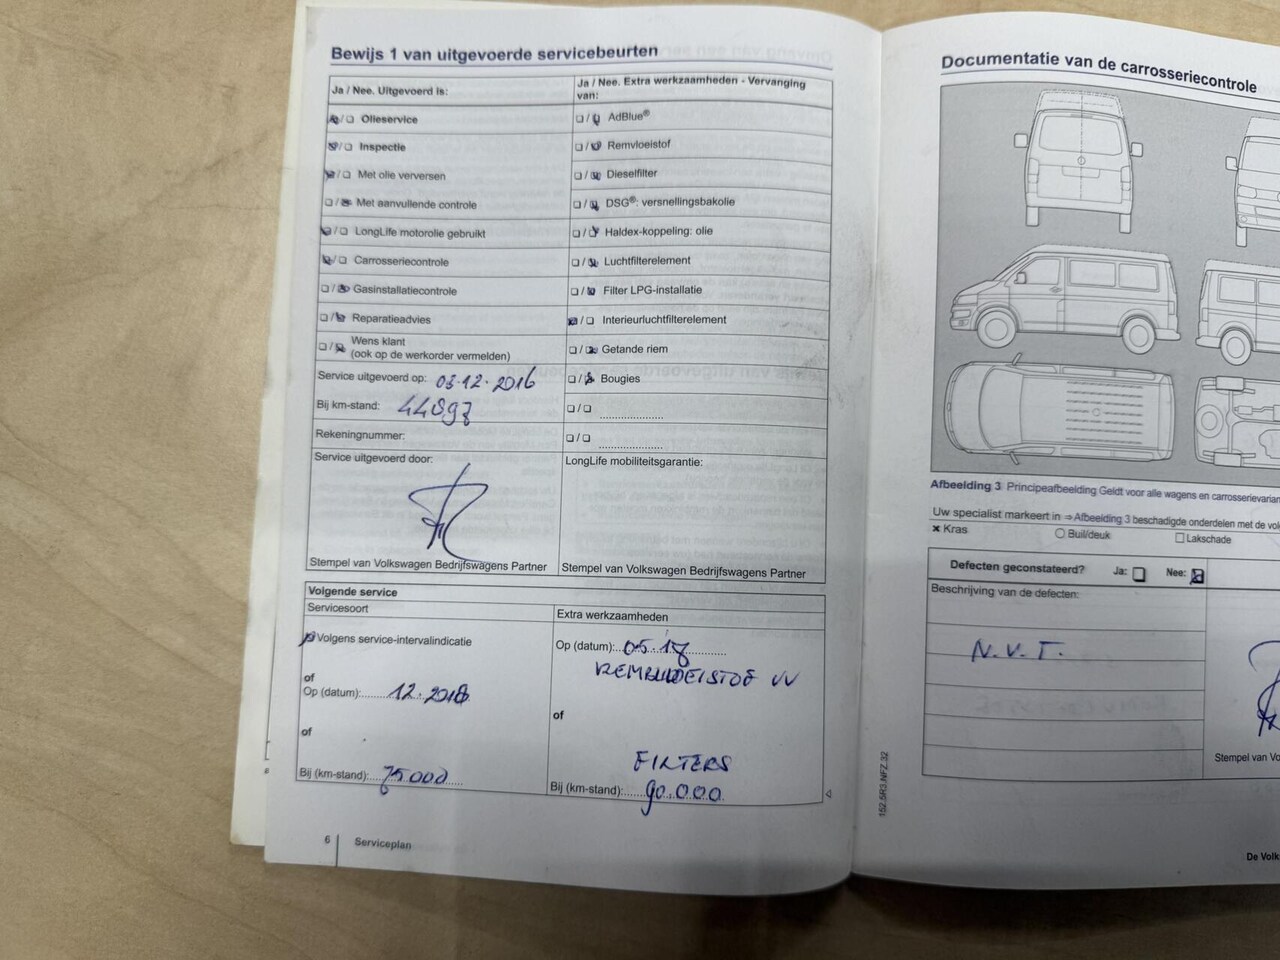 Bewijs 1 van uitgevoerde servicebeurten
Ja / Nee. Uitgevoerd is:
Olieservice
Inspectie
Met olie verversen
Met aanvullende controle
LongLife motorolie gebruikt
Carrosseriecontrole
Gasinstallatiecontrole
Reparatieadvies
Wens klant
(ook op de werkorder vermelden)
Service uitgevoerd op: 03-12-2016
Bij km-stand:
Rekeningnummer:
Service uitgevoerd door:
Stempel van Volkswagen Bedrijfswagens Partner
Ja / Nee. Extra werkzaamheden - Vervanging
van:
AdBlue®
Remvloeistof
Dieselfilter
DSG®: versnellingsbakolie
Haldex-koppeling: olie
Luchtfilterelement
Filter LPG-installatie
Interieurluchtfilterelement
Getande riem
Bougies
LongLife mobiliteitsgarantie:
Stempel van Volkswagen Bedrijfswagens Partner
Volgende service
Servicesoort
Volgens service-intervalindicatie
of
Op (datum): 12.2018
of
Bij (km-stand): 75000
Extra werkzaamheden
Op (datum): 05.18
REMVLOEISTOF VV
of
FILTERS
Bij (km-stand): 90.000
6 Serviceplan
Documentatie van de carrosseriecontrole
Afbeelding 3 Principeafbeelding Geldt voor alle wagens en carrosserievarian
Uw specialist markeert in ⇒ Afbeelding 3 beschadigde onderdelen met de vol
Kras Buil/deuk Lakschade
Defecten geconstateerd? Ja: Nee:
Beschrijving van de defecten:
N.V.T.
Stempel van Vo
152.5R3.NFZ.32
De Volk